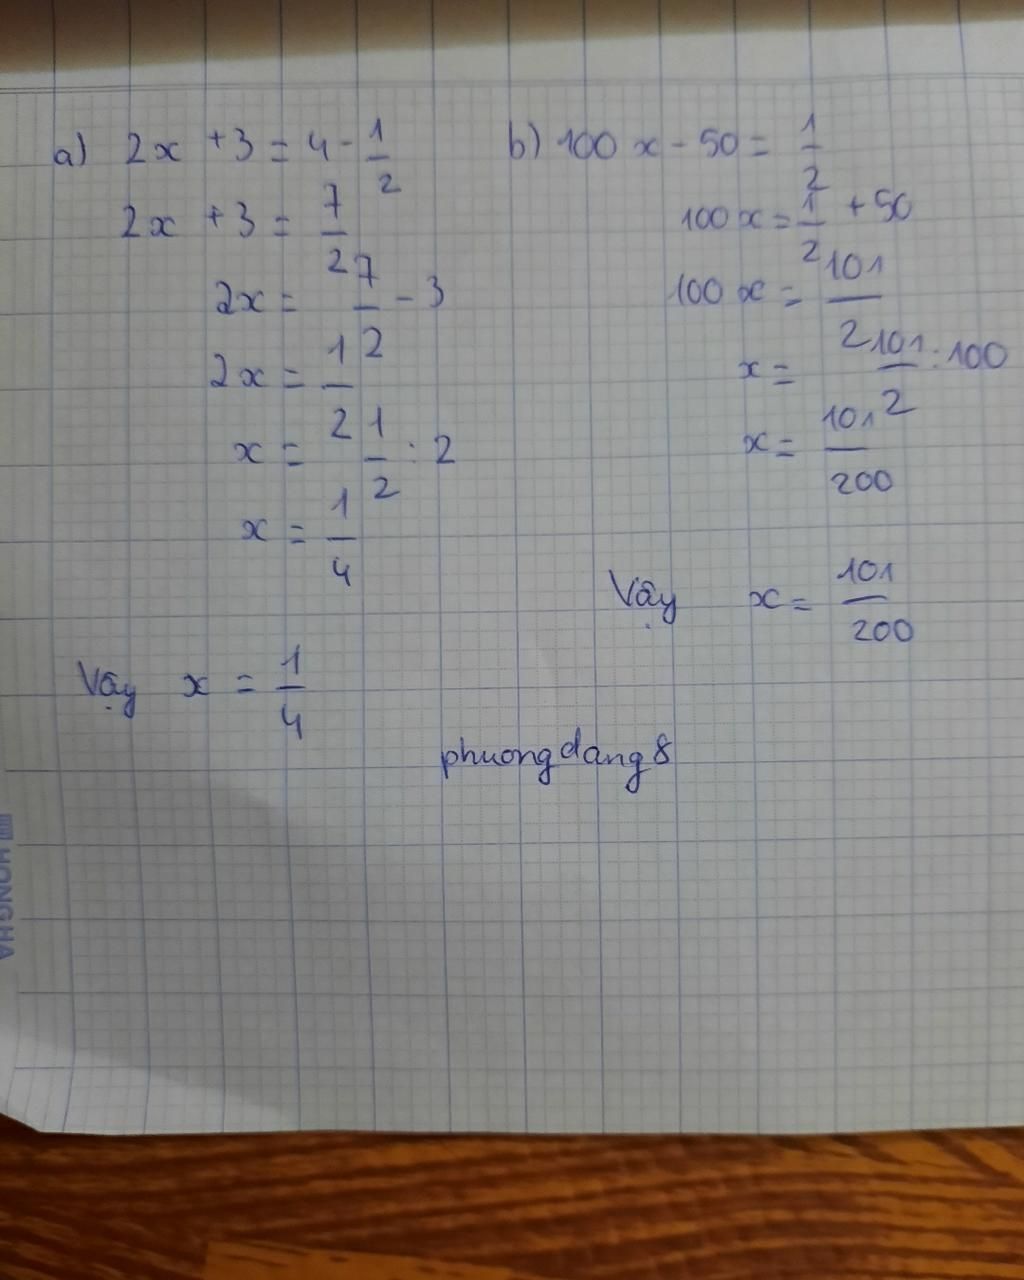 a) 2x + 3 = 4 - 1/2
2x + 3 = 7/2
2x = 7/2 - 3
2x = 1/2
x = 1/2 : 2
x = 1/4
Vậy x = 1/4
b) 100x - 50 = 1/2
100x = 1/2 + 50
100x = 101/2
x = 101/2 : 100
x = 101/200
Vậy x = 101/200
phuongdang8
HONGHA